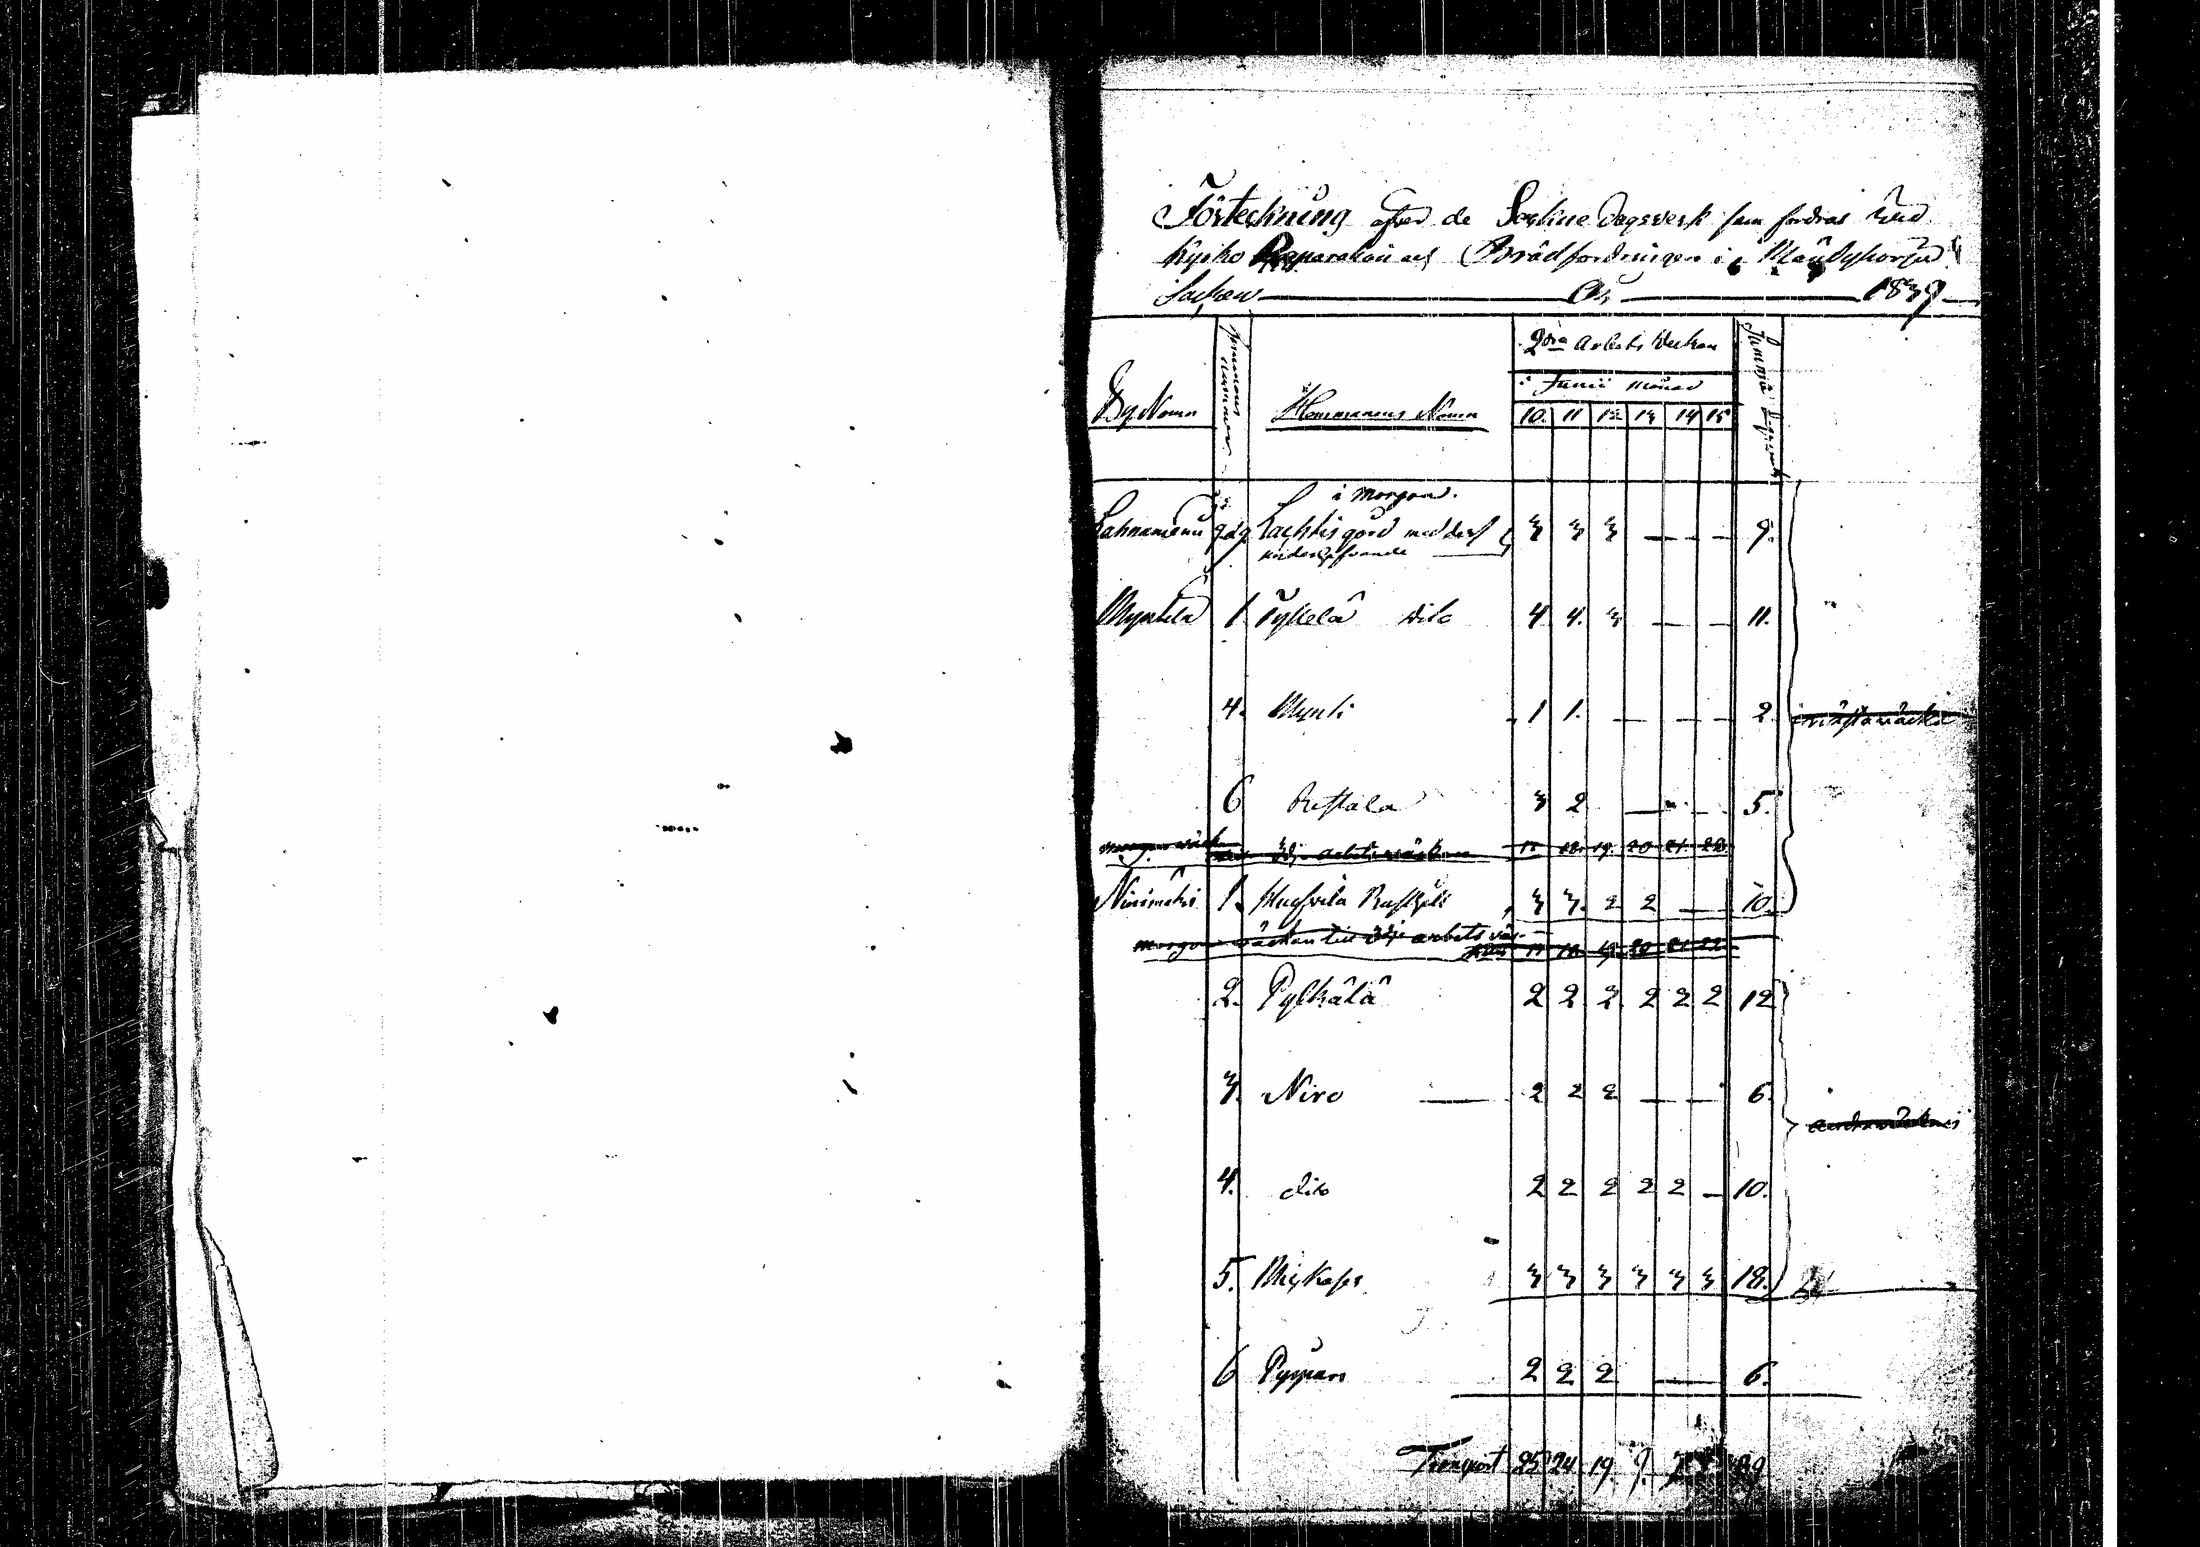 Förteckning öfver de Sockne Dagsverk som fordras wid
Kyrko Reparation och Brädfordringen i Mäntyharju
Socken År 1839
By Namn
Hemmanens nummer
Hemmanens Namn
2dra Arbets Veckan
i Junii Månad
10. 11 12. 13 14 15
Summa Dagsverk
i morgon.
Lahnaniemi 2 Lachtis gård med dess 3 3 3 — — — 9.
underlydande
Myntilä 1 Tyllelä dito 4 4. 3 — — 11.
4. Mynti 1 1. — — — 2
6 Rustala 3 2 — — 5.
3dje arbets wäckan 17 18. 19. 20 21. 22.
Niinimäki 1. Rusthåll 3 3. 2 2 — 10.
morgon wäckan till 3dje arbets wäc-
kan 17 18. 19. 20 21 22
2. Pylkälä 2 2 2 2 2 2 12
3. Niro — 2 2 2 — — 6.
4. dito 2 2 2 2 2 — 10.
5. 3 3 3 3 3 3 18.
6 Pyyparo 2 2 2 — 6.
Transport 25 24 19. 9.